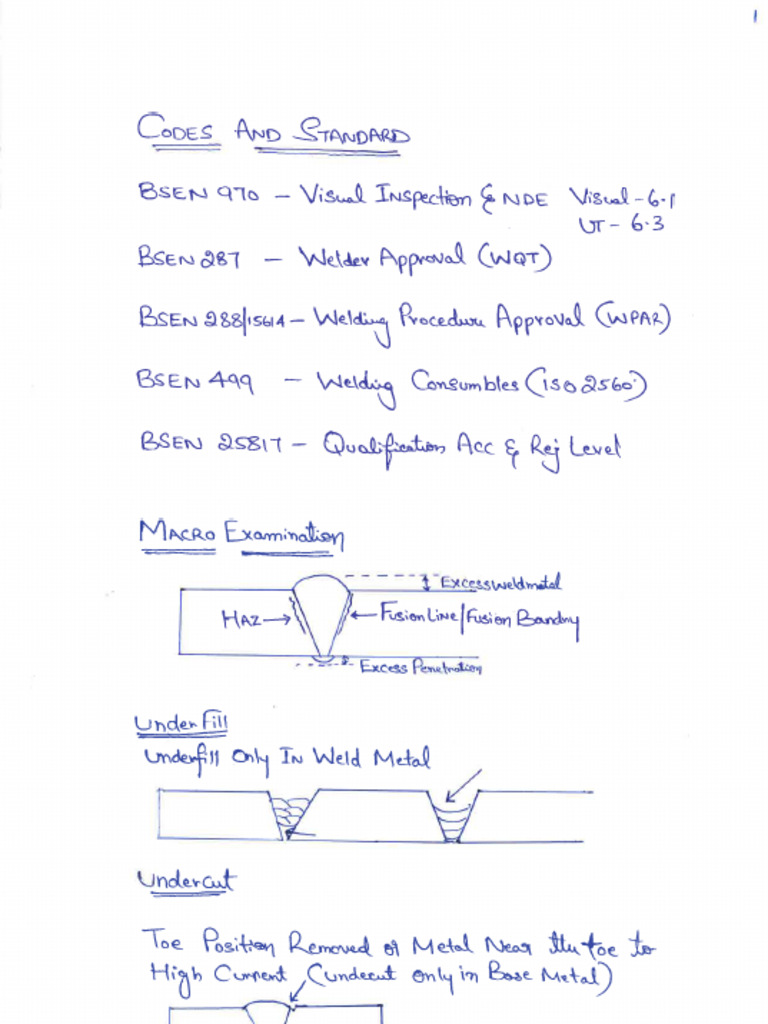 1
CODES AND STANDARD
BSEN 970 – Visual Inspection & NDE Visual – 6.1
UT – 6.3
BSEN 287 – Welder Approval (WQT)
BSEN 288/15614 – Welding Procedure Approval (WPAR)
BSEN 499 – Welding Consumbles (ISO 2560)
BSEN 25817 – Qualification Acc & Rej Level
MACRO Examination
Excess weld metal
HAZ
Fusion Line/Fusion Bandry
Excess Penetration
Underfill
Underfill Only In Weld Metal
Undercut
Toe Position Removed of Metal Near the toe to
High Current (undecut only in Base Metal)